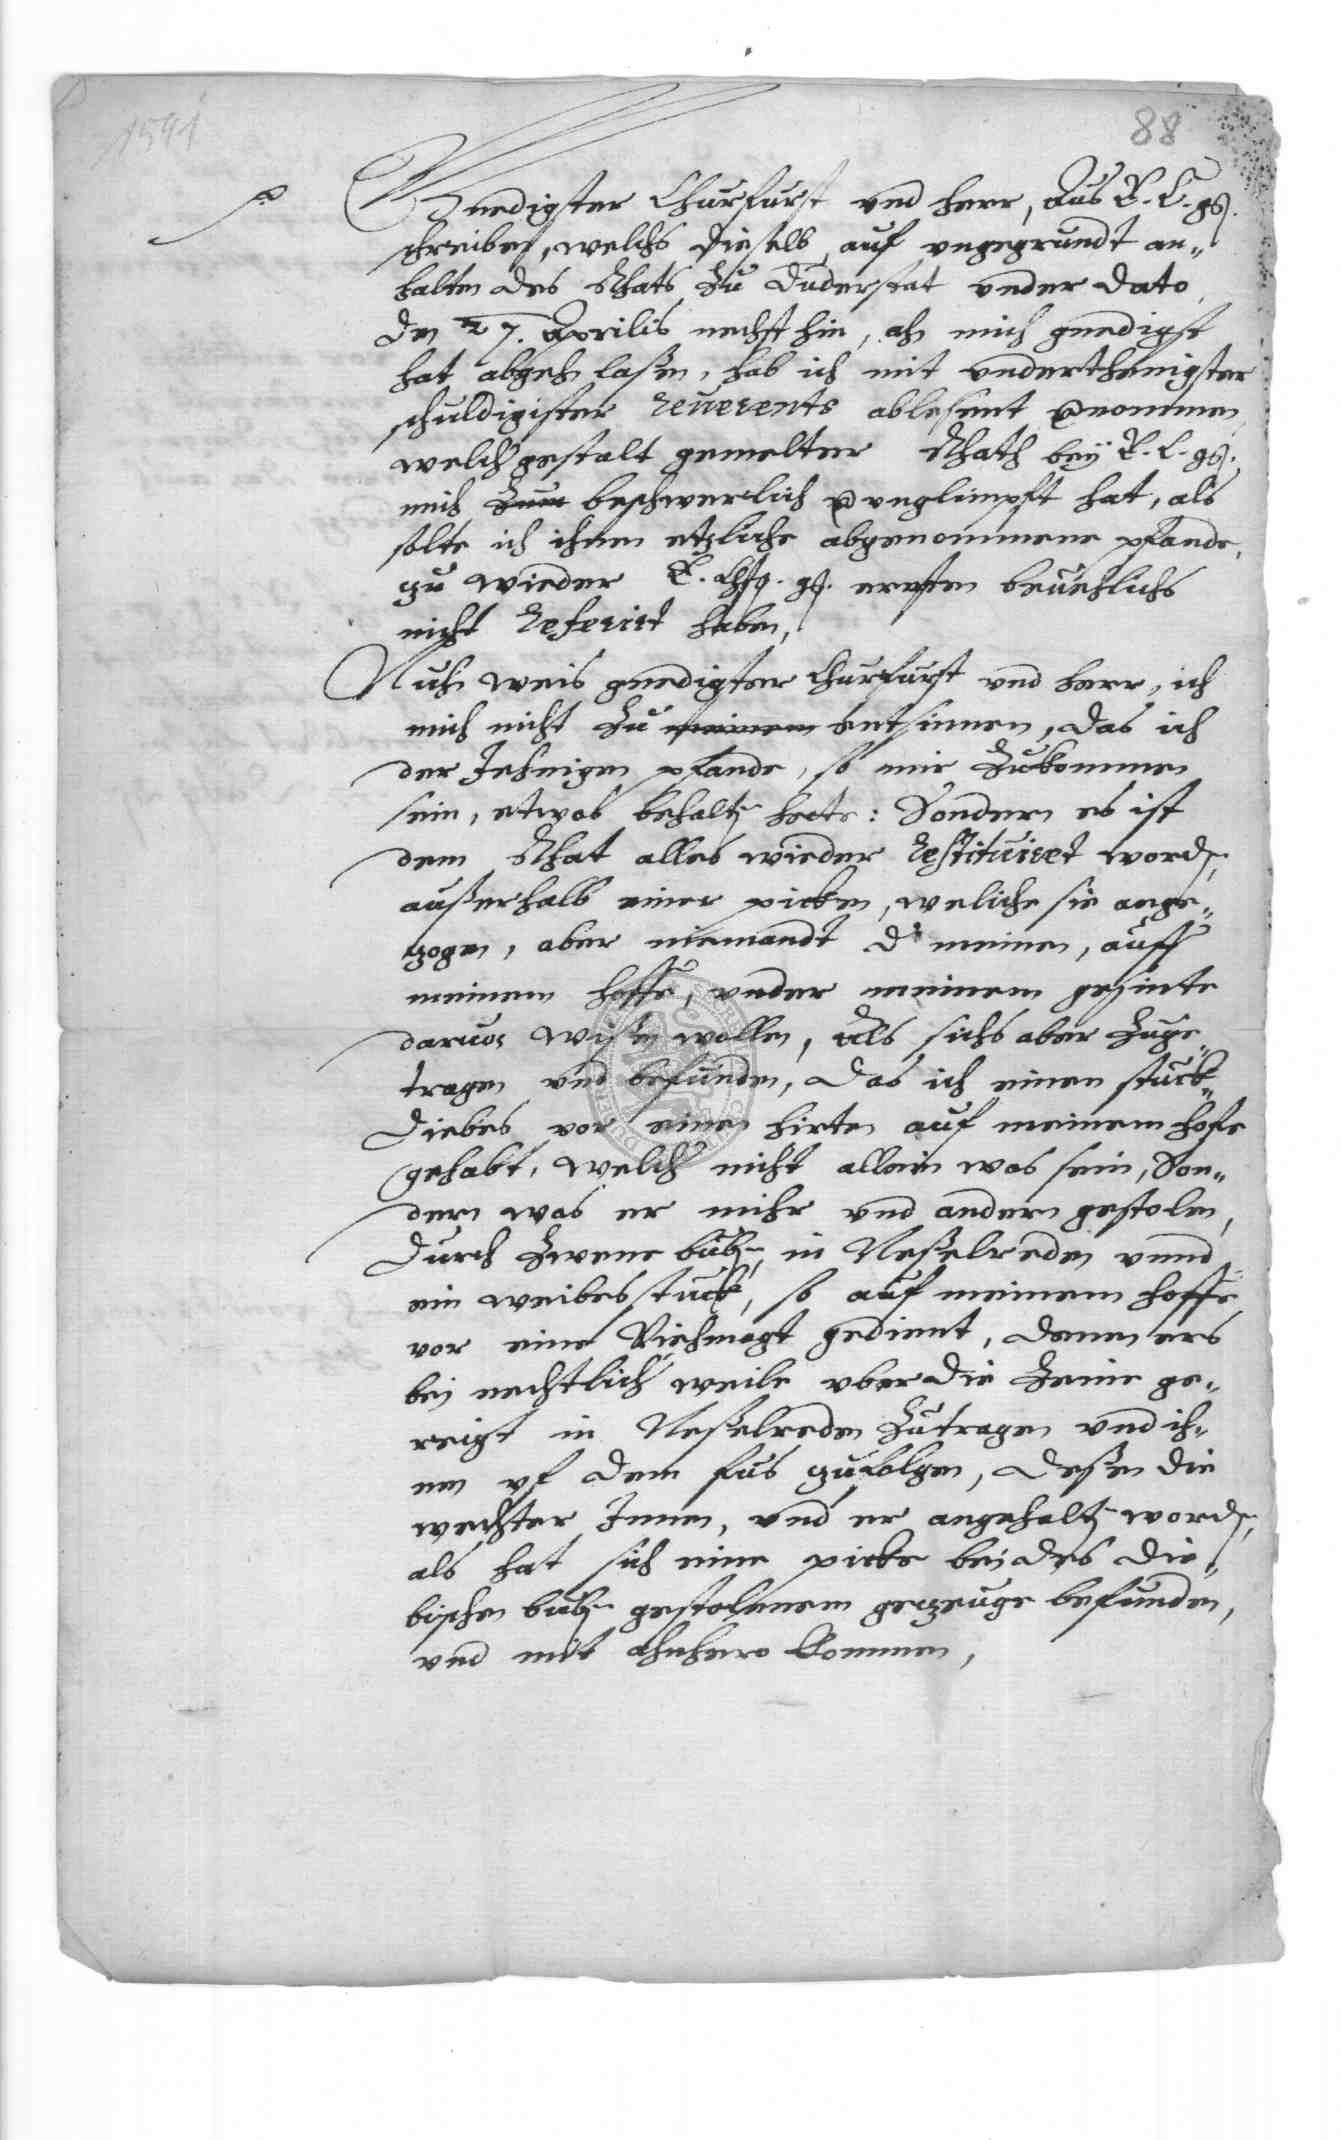 1591
88
p
Gnedigster Churfurst vnd herr, Aus E. C. gh.
schreiben, welchs dieselb, auf vngegrundt an„
halten des Rhats zu Duderstat vnder dato
den 27. Aprilis nechsthin, ahn mich gnedigst
hat abgehn laßen, hab ich mit vnderthenigster
schuldigister reuerents ablesent vernommen
welch gestalt gemelter Rhath bey E. C. gh.
mich zum beschwerlich verunglimpft hat, als
solte ich ihnen etzliche abgenommene pfande,
zu wieder E. Chfg. gh. ernsten beuehlichs
nicht referirt haben,
Nuhn weis gnedigster Churfurst vnd herr, ich
mich nicht zu meinem entsinnen, das ich
der Jehnigen pfande, so mir zukommen
sein, etwas behalten hette: Sondern es ist
dem Rhat alles wieder restituiret worden,
außerhalb einer picken, weliche sie ange„
zogen, aber niemandt der meinen, auff
meinem hoffe, vnder meinem gesinte
daruon wißen wollen, Als sichs aber zuge„
tragen vnd befunden, das ich einen stuck„
diebes vor einen hirten auf meinem hofe
gehabt, welcher nicht allein was sein, Son„
dern was er mihr vnd andern gestolen,
durch zwene buben, in Neßelreden vnnd
ein weibesstuck, so auf meinem hoffe,
vor eine Viehmagt gedient, denen ers
bei nechtlicher weile vber die Zeune ge„
reigt in Neßelreden zutragen vnd ih„
nen vf dem fus zufolgen, deßen die
wechter Innen, vnd er angehalten worden,
als hat sich eine picke bei des die„
bischen buben gestolenem gezeuge befunden,
vnd mit ahnhero kommen,